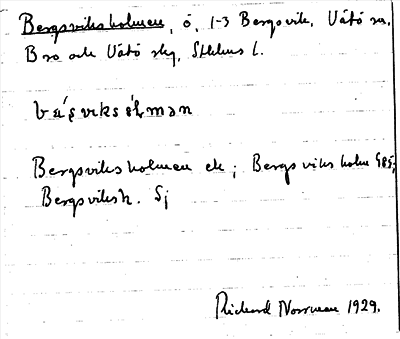 Bergsviksholmen, ö, 1-3 Bergsvik, Vätö sn,
Bro och Vätö skg, Sthlms l.
Bergsviksholmen ek; Bergsviksholm G85;
Bergsviksh. Sj
Rickard Norrman 1929.